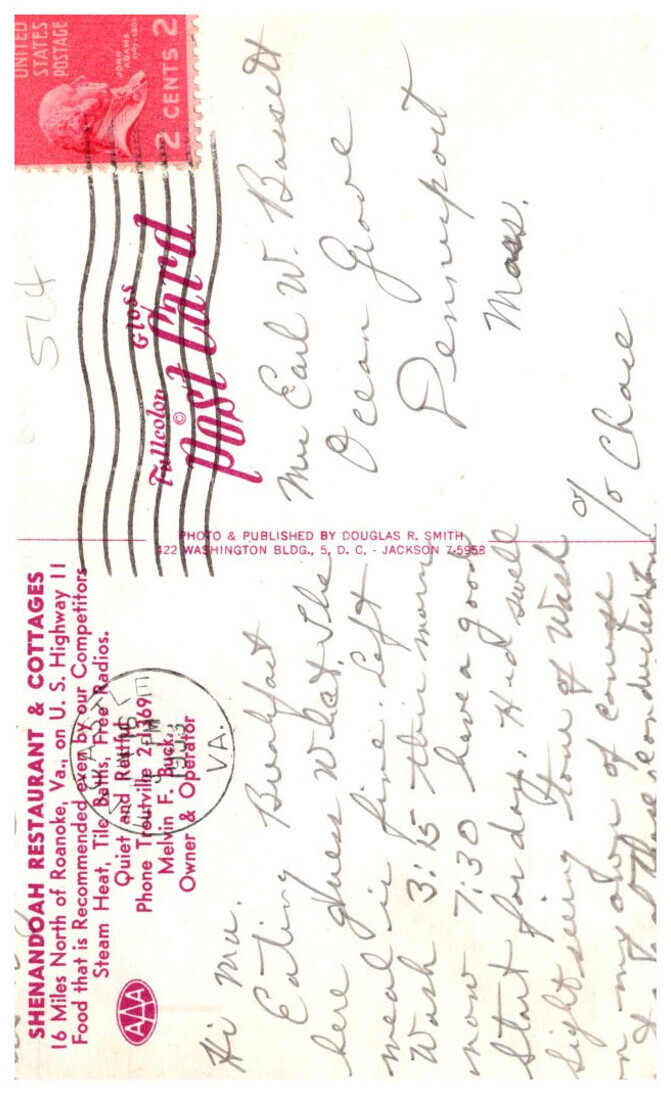 SHENANDOAH RESTAURANT & COTTAGES
16 Miles North of Roanoke, Va., on U. S. Highway 11
Food that is Recommended even by our Competitors
Steam Heat, Tile Baths, Free Radios.
Quiet and Restful
Phone Troutville 2-1369
Melvin F. Buck,
Owner & Operator
AAA
VA.
Hi Ma.
Eating Breakfast
here guess What. The
meal is fine. Left
Wash 3:15 this morn
now 7:30 have a good
start for day. Had swell
sight seeing tour of Wash
on my own of course
PHOTO & PUBLISHED BY DOUGLAS R. SMITH
422 WASHINGTON BLDG., 5, D. C. - JACKSON 7-5958
Fullcolor Gloss
Post Card
©
UNITED
STATES
POSTAGE
JOHN
ADAMS
2 CENTS 2
514
Mrs Earl W. Bassett
Ocean Grove
Dennisport
Mass.
c/o Chase